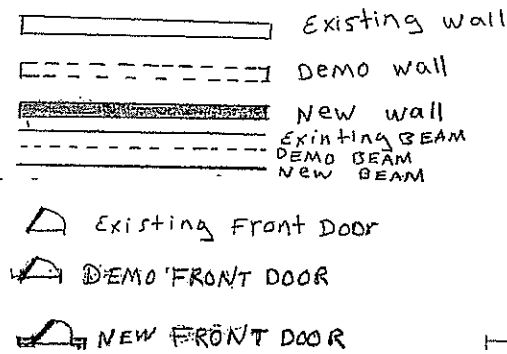 Existing wall
Demo wall
New wall
Exinting BEAM
DEMO BEAM
New BEAM
Existing Front Door
DEMO FRONT DOOR
NEW FRONT DOOR